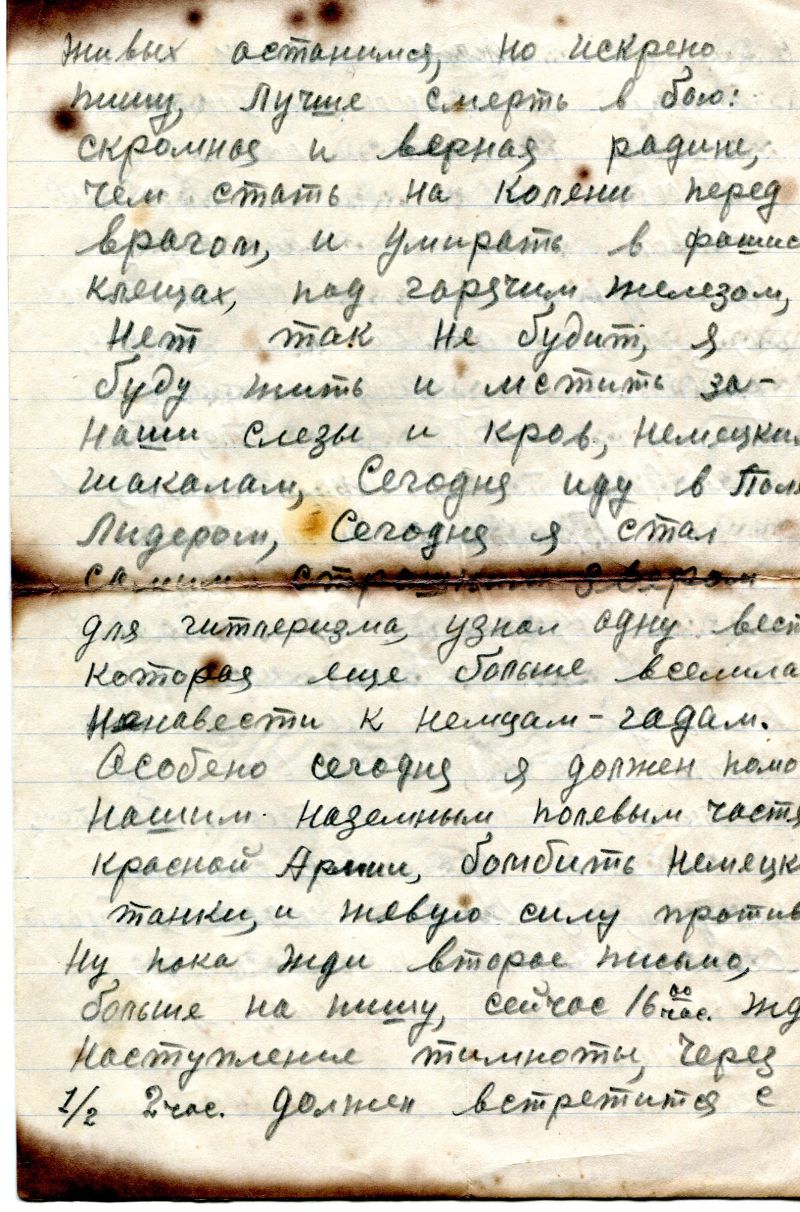 живых останимся, но искрено
пишу, Лучше смерть в бою:
скромная и верная радине,
чем стать на колени перед
врагом, и умирать в фашис
клещах, под горячим железом,
Нет так не будит, я
буду жить и мстить за-
наши слезы и кров, немецким
шакалам, Сегодня иду в Поле
Лидером, Сегодня я стал
самим страшним звером
для гитлеризма, узнал одну вест
которая еще больше вселила
ненавести к немцам-гадам.
Особено сегодня я должен помо
нашим наземным полевым частя
красной Армии, бомбить немецк
танки, и жевую силу против
Ну пока жди второе письмо,
больше на пишу, сейчас 16 00 час. жд
наступление тимноты, через
1/2 2 час. должен встретится с